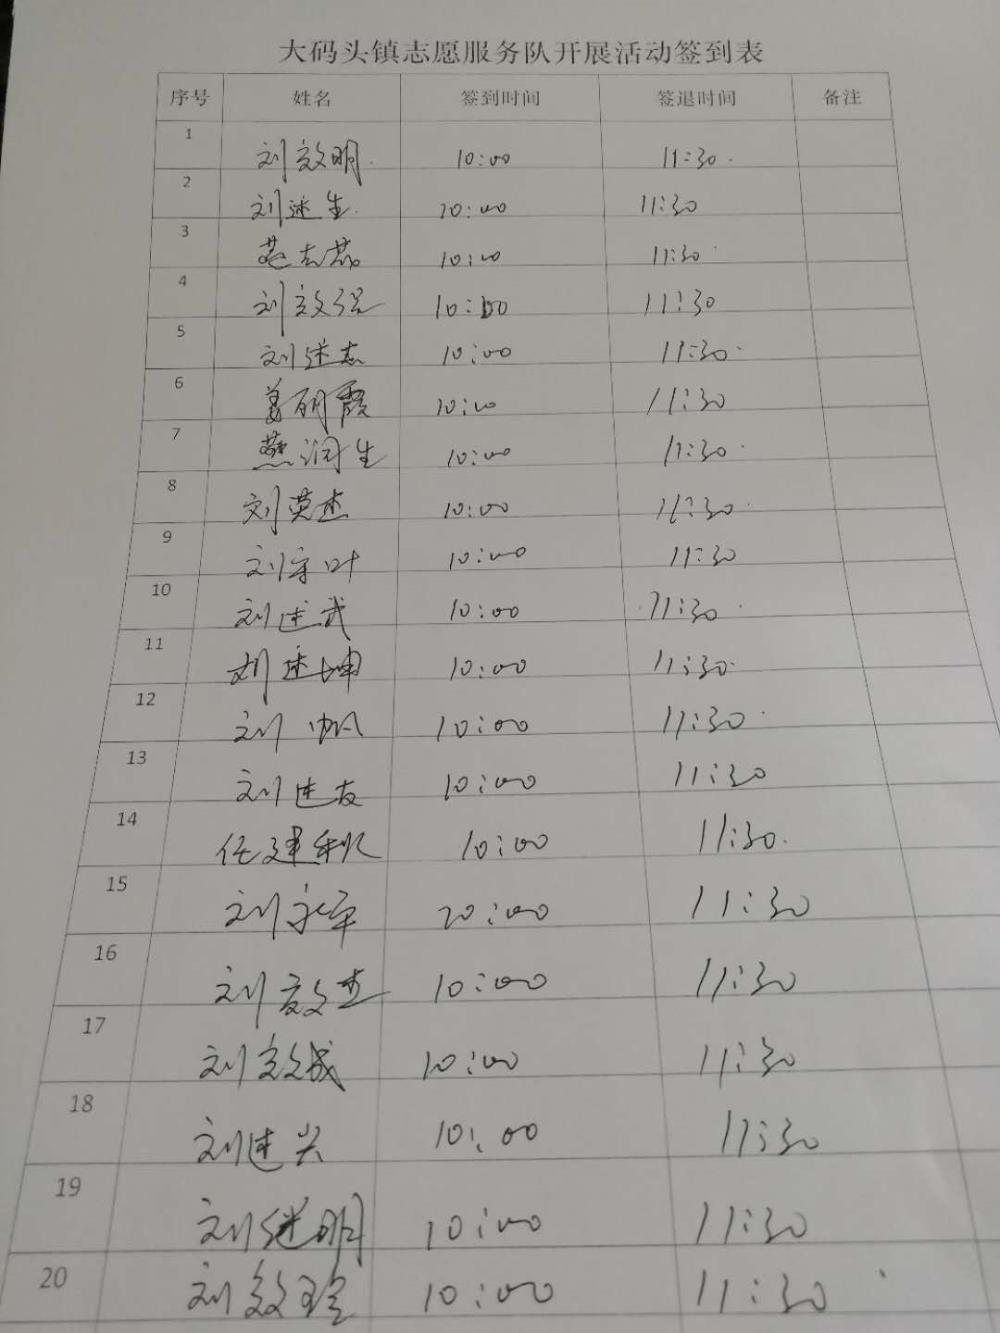 大码头镇志愿服务队开展活动签到表
序号 姓名 签到时间 签退时间 备注
1 刘效明 10:00 11:30
2 刘述生 10:00 11:30
3 10:00 11:30
4 刘效强 10:00 11:30
5 刘继志 10:00 11:30
6 10:00 11:30
7 燕润生 10:00 11:30
8 刘英杰 10:00 11:30
9 刘守叶 10:00 11:30
10 刘述武 10:00 11:30
11 刘述坤 10:00 11:30
12 刘帆 10:00 11:30
13 刘进友 10:00 11:30
14 任建 10:00 11:30
15 刘永军 10:00 11:30
16 刘效杰 10:00 11:30
17 刘效成 10:00 11:30
18 刘进兴 10:00 11:30
19 刘继明 10:00 11:30
20 刘效 10:00 11:30